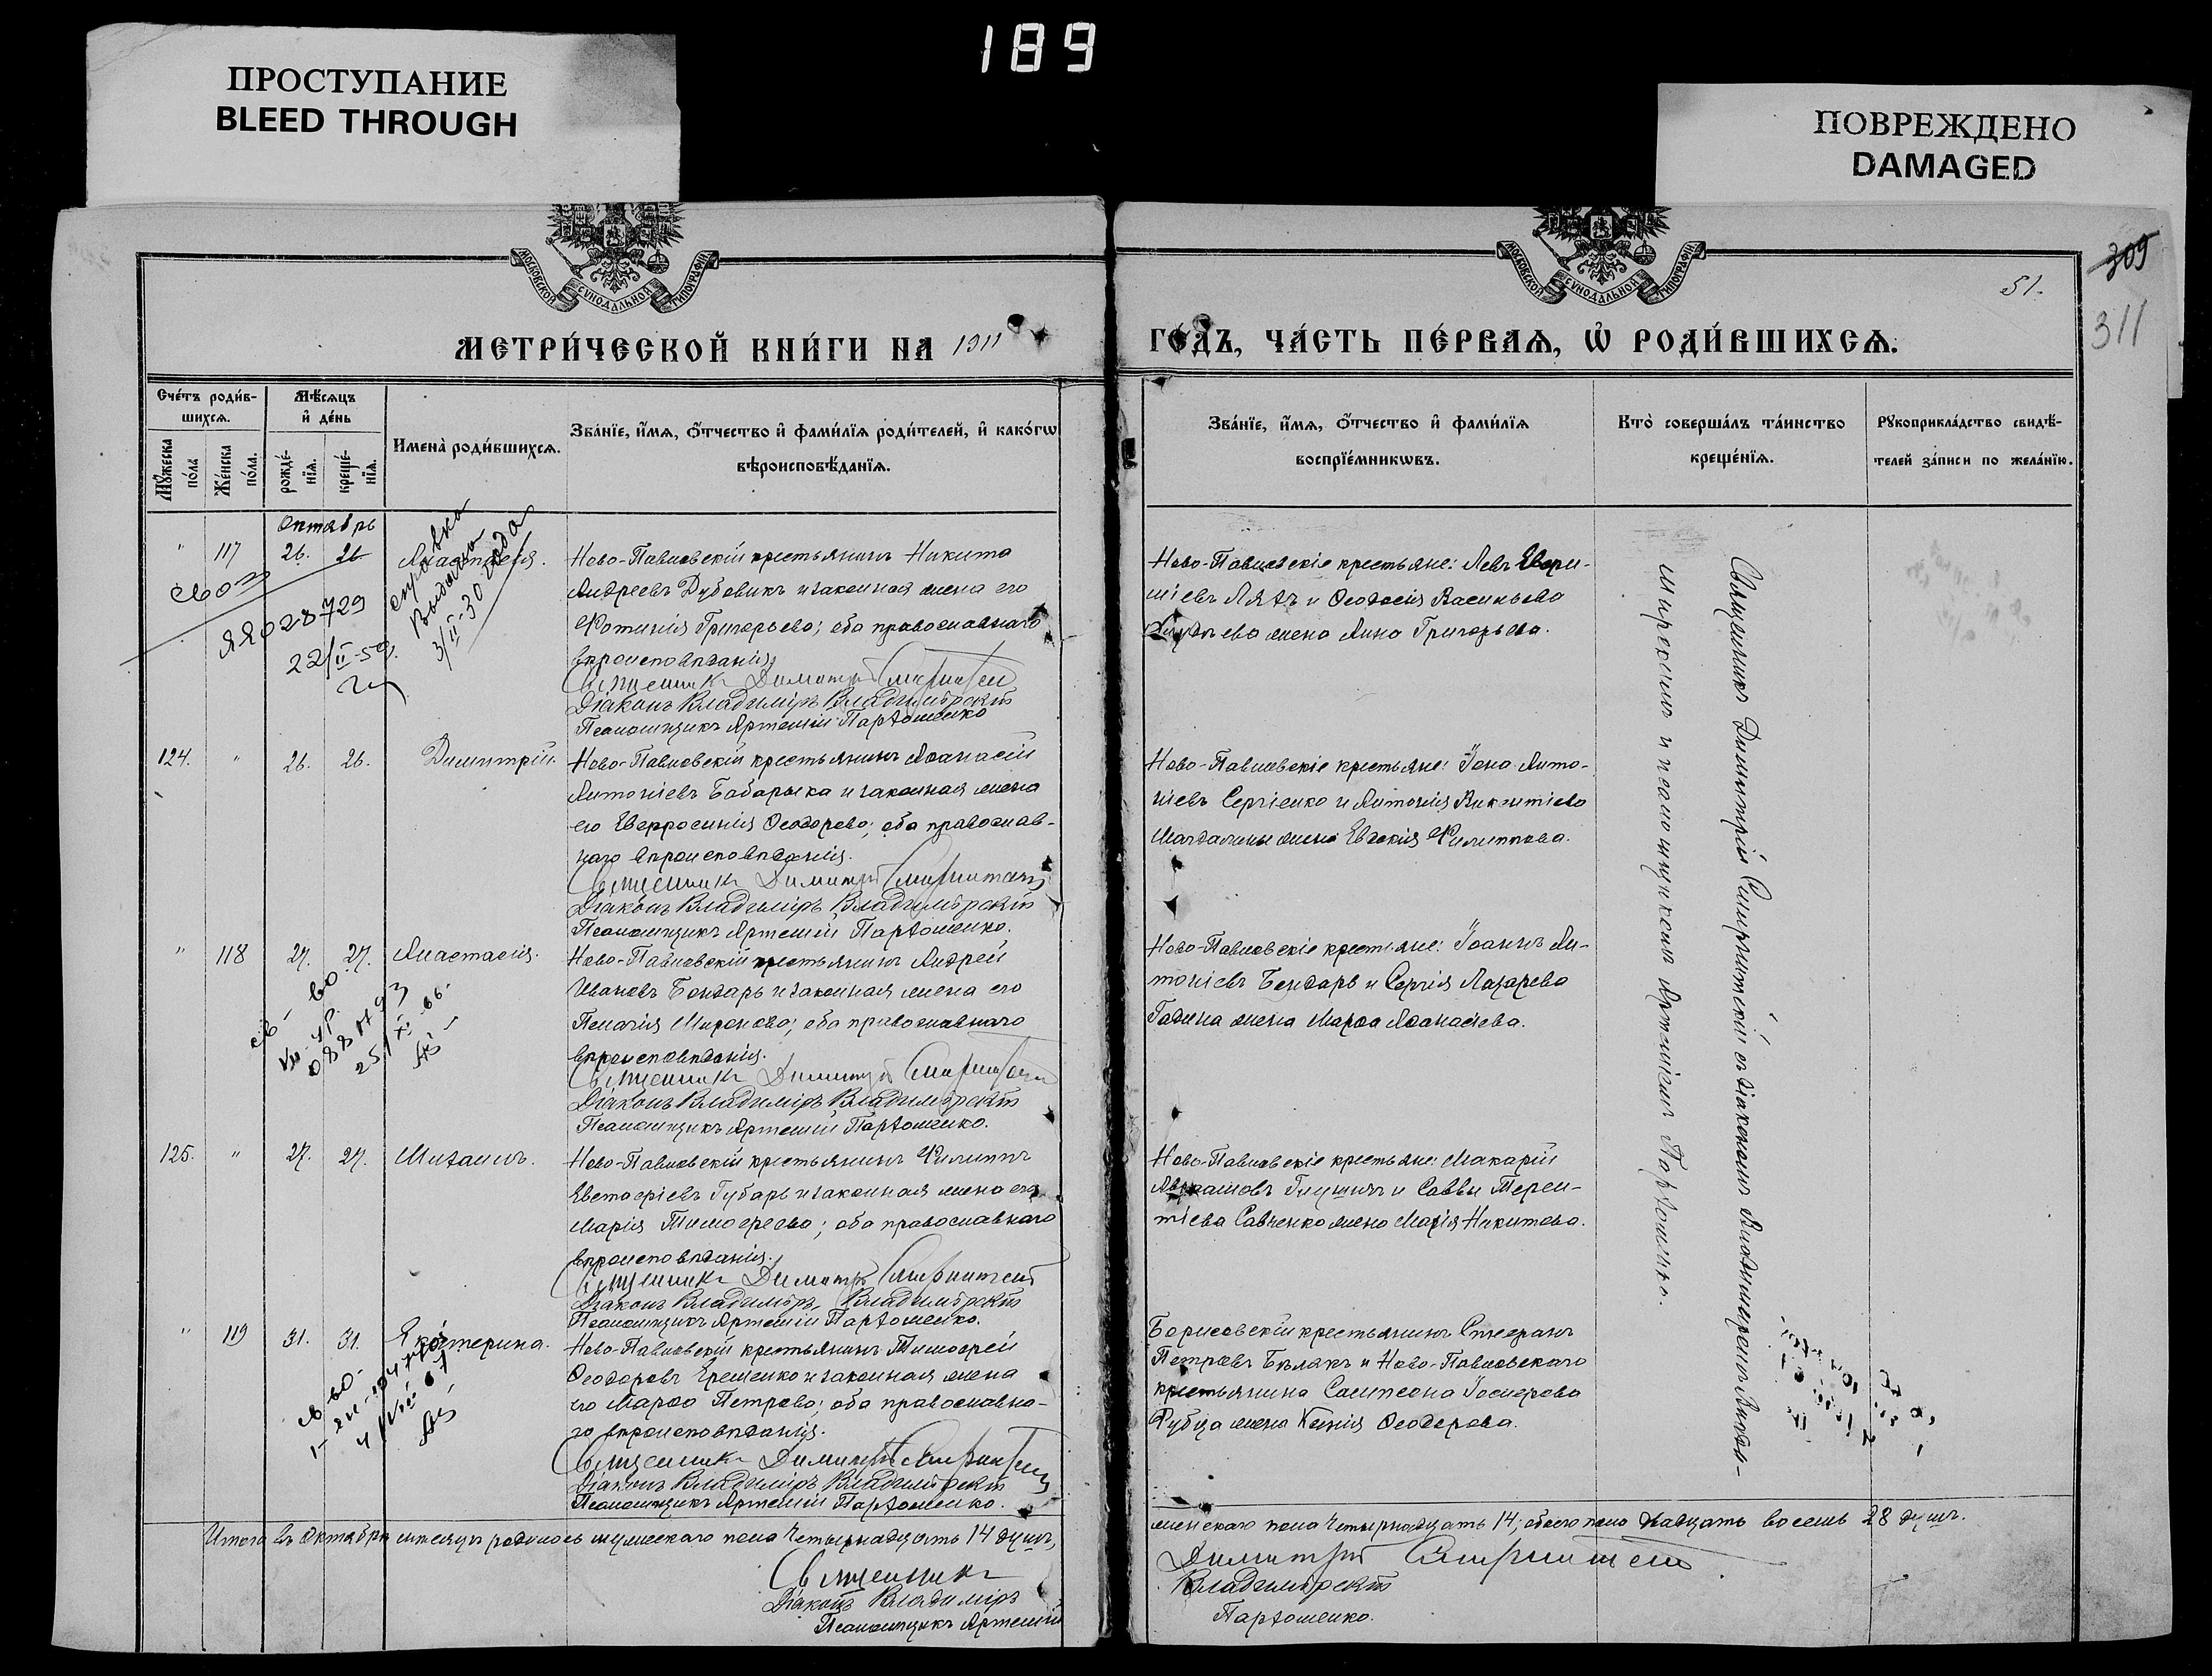 189
ПРОСТУПАНИЕ
BLEED THROUGH
ПОВРЕЖДЕНО
DAMAGED
МОСКОВСКОЙ СѴНОДАЛЬНОЙ ТИПОГРАФІИ
МОСКОВСКОЙ СѴНОДАЛЬНОЙ ТИПОГРАФІИ
309
51.
311
МЕТРИ́ЧЕСКОЙ КНИ́ГИ НА 1911
ГО́ДЪ, ЧА́СТЬ ПЕ́РВАѦ, Ѡ҆ РОДИ́ВШИХСѦ.
Сче́тъ роди́в-
шихсѧ.
Мꙋ́жеска по́ла
Же́нска по́ла.
Мѣ́сѧцъ
и҆ де́нь
рожде́-нїѧ.
креще́-нїѧ.
Имена̀ роди́вшихсѧ.
Зва́нїе, и҆́мѧ, ѻ҆́тчество и҆ фами́лїѧ роди́телей, и҆ како́гѡ
вѣроисповѣ́данїѧ.
Зва́нїе, и҆́мѧ, ѻ҆́тчество и҆ фами́лїѧ
воспрїе́мникѡвъ.
Кто̀ соверша́лъ та́инство
креще́нїѧ.
Рꙋкоприкла́дство свидѣ́-
телей за́писи по жела́нїю.
Октябрь
" 117 26. 26 Анастасія.
Ново-Павловскій крестьянинъ Никита
Андреевъ Дубовикъ и законная жена его
Фотинія Григорьева; оба православнаго
вѣроисповѣданія,
Священникъ Димитрій
Діаконъ Владиміръ Владимірскій
Псаломщикъ Артемій Пархоменко
Ново-Павловскіе крестьяне: Левъ
и Ѳеодосія Васильева
жена Анна Григорьева.
св о
ЯЯ028729
22/II-59.
справка
Выдана
3/II-30 года
124. " 26. 26. Димитрій.
Ново-Павловскій крестьянинъ Аѳанасій
Антоніевъ Бабарыка и законная жена
его Евфросинія Ѳеодорова; оба православ-
наго вѣроисповѣданія.
Священникъ Димитрій
Діаконъ Владиміръ Владимірскій
Псаломщикъ Артемій Пархоменко.
Ново-Павловскіе крестьяне: Іона Анто-
ніевъ Сергіенко и Антонія Викентіева
жена Евдокія Филиппова.
" 118 27. 27. Анастасія.
Ново-Павловскій крестьянинъ Андрей
Ивановъ Бондарь и законная жена его
Пелагія Миронова; оба православнаго
вѣроисповѣданія.
Священникъ Димитрій
Діаконъ Владиміръ Владимірскій
Псаломщикъ Артемій Пархоменко.
Ново-Павловскіе крестьяне: Іоаннъ Ан-
тоніевъ Бондарь и Сергія Лазарева
жена Марѳа Аѳанасіева.
125. " 27. 27. Михаилъ.
Ново-Павловскій крестьянинъ Филиппъ
Евстафіевъ Губарь и законная жена его
Марія Тимофеева; оба православнаго
вѣроисповѣданія.
Священникъ Димитрій
Діаконъ Владиміръ Владимірскій
Псаломщикъ Артемій Пархоменко.
Ново-Павловскіе крестьяне: Макарій
Аврамовъ и Саввы Терен-
тіева Савченко жена Марія Никитова.
" 119 31. 31. Екатерина.
Ново-Павловскій крестьянинъ Тимофей
Ѳеодоровъ Еременко и законная жена
его Марѳа Петрова; оба православна-
го вѣроисповѣданія.
Священникъ Димитрій
Діаконъ Владиміръ Владимірскій
Псаломщикъ Артемій Пархоменко.
Борисовскій крестьянинъ Стефанъ
Петровъ Бѣлакъ и Ново-Павловскаго
крестьянина Сампсона Іосифова
Рубца жена Ксенія Ѳеодорова.
Священникъ Димитрій съ діакономъ Владиміромъ Влади-
мірскимъ и псаломщикомъ Артеміемъ Пархоменко.
Итого въ Октябрѣ мѣсяцѣ родилось мужескаго пола четырнадцать 14 душъ,
женскаго пола четырнадцать 14; обоего пола двадцать восемь 28 душъ.
Священникъ Димитрій
Діаконъ Владиміръ Владимірскій
Псаломщикъ Артемій Пархоменко.